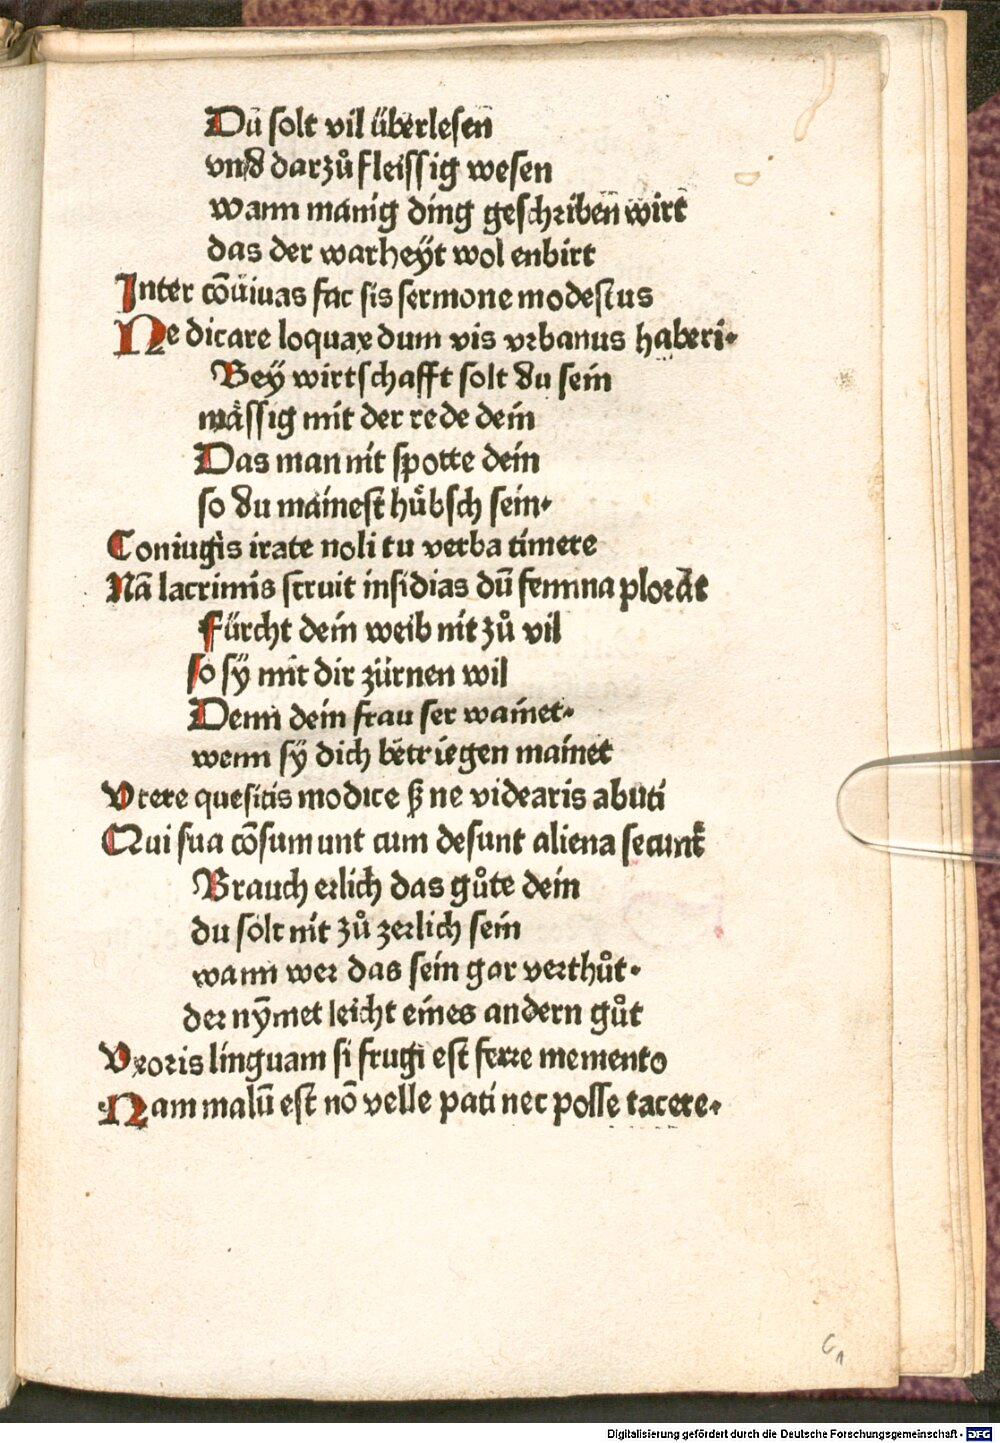 Du solt vil überlesen
vnd darzů fleissig wesen
wann mänig ding geschriben wirt
das der warheÿt wol enbirt
Inter cōuiuas fac sis sermone modestus
Ne dicare loquax dum vis vrbanus haberi·
Beÿ wirtschafft solt du sein
mässig mit der rede dein
Das man nit spotte dein
so du mainest hübsch sein·
Coniugis irate noli tu verba timere
Nā lacrimis struit insidias dū femina plorat
Fürcht dein weib nit zů vil
so sÿ mit dir zürnen wil
Denn dein frau ser wainet·
wenn sÿ dich betriegen mainet
Vtere quesitis modice ß ne videaris abuti
Qui sua cōsumunt cum desunt aliena secunt
Brauch erlich das gůte dein
du solt nit zů zerlich sein
wann wer das sein gar verthůt·
der nȳmet leicht eines andern gůt
Vxoris linguam si frugi est ferre memento
Nam malū est nō velle pati nec posse tacere·
Digitalisierung gefördert durch die Deutsche Forschungsgemeinschaft - DFG